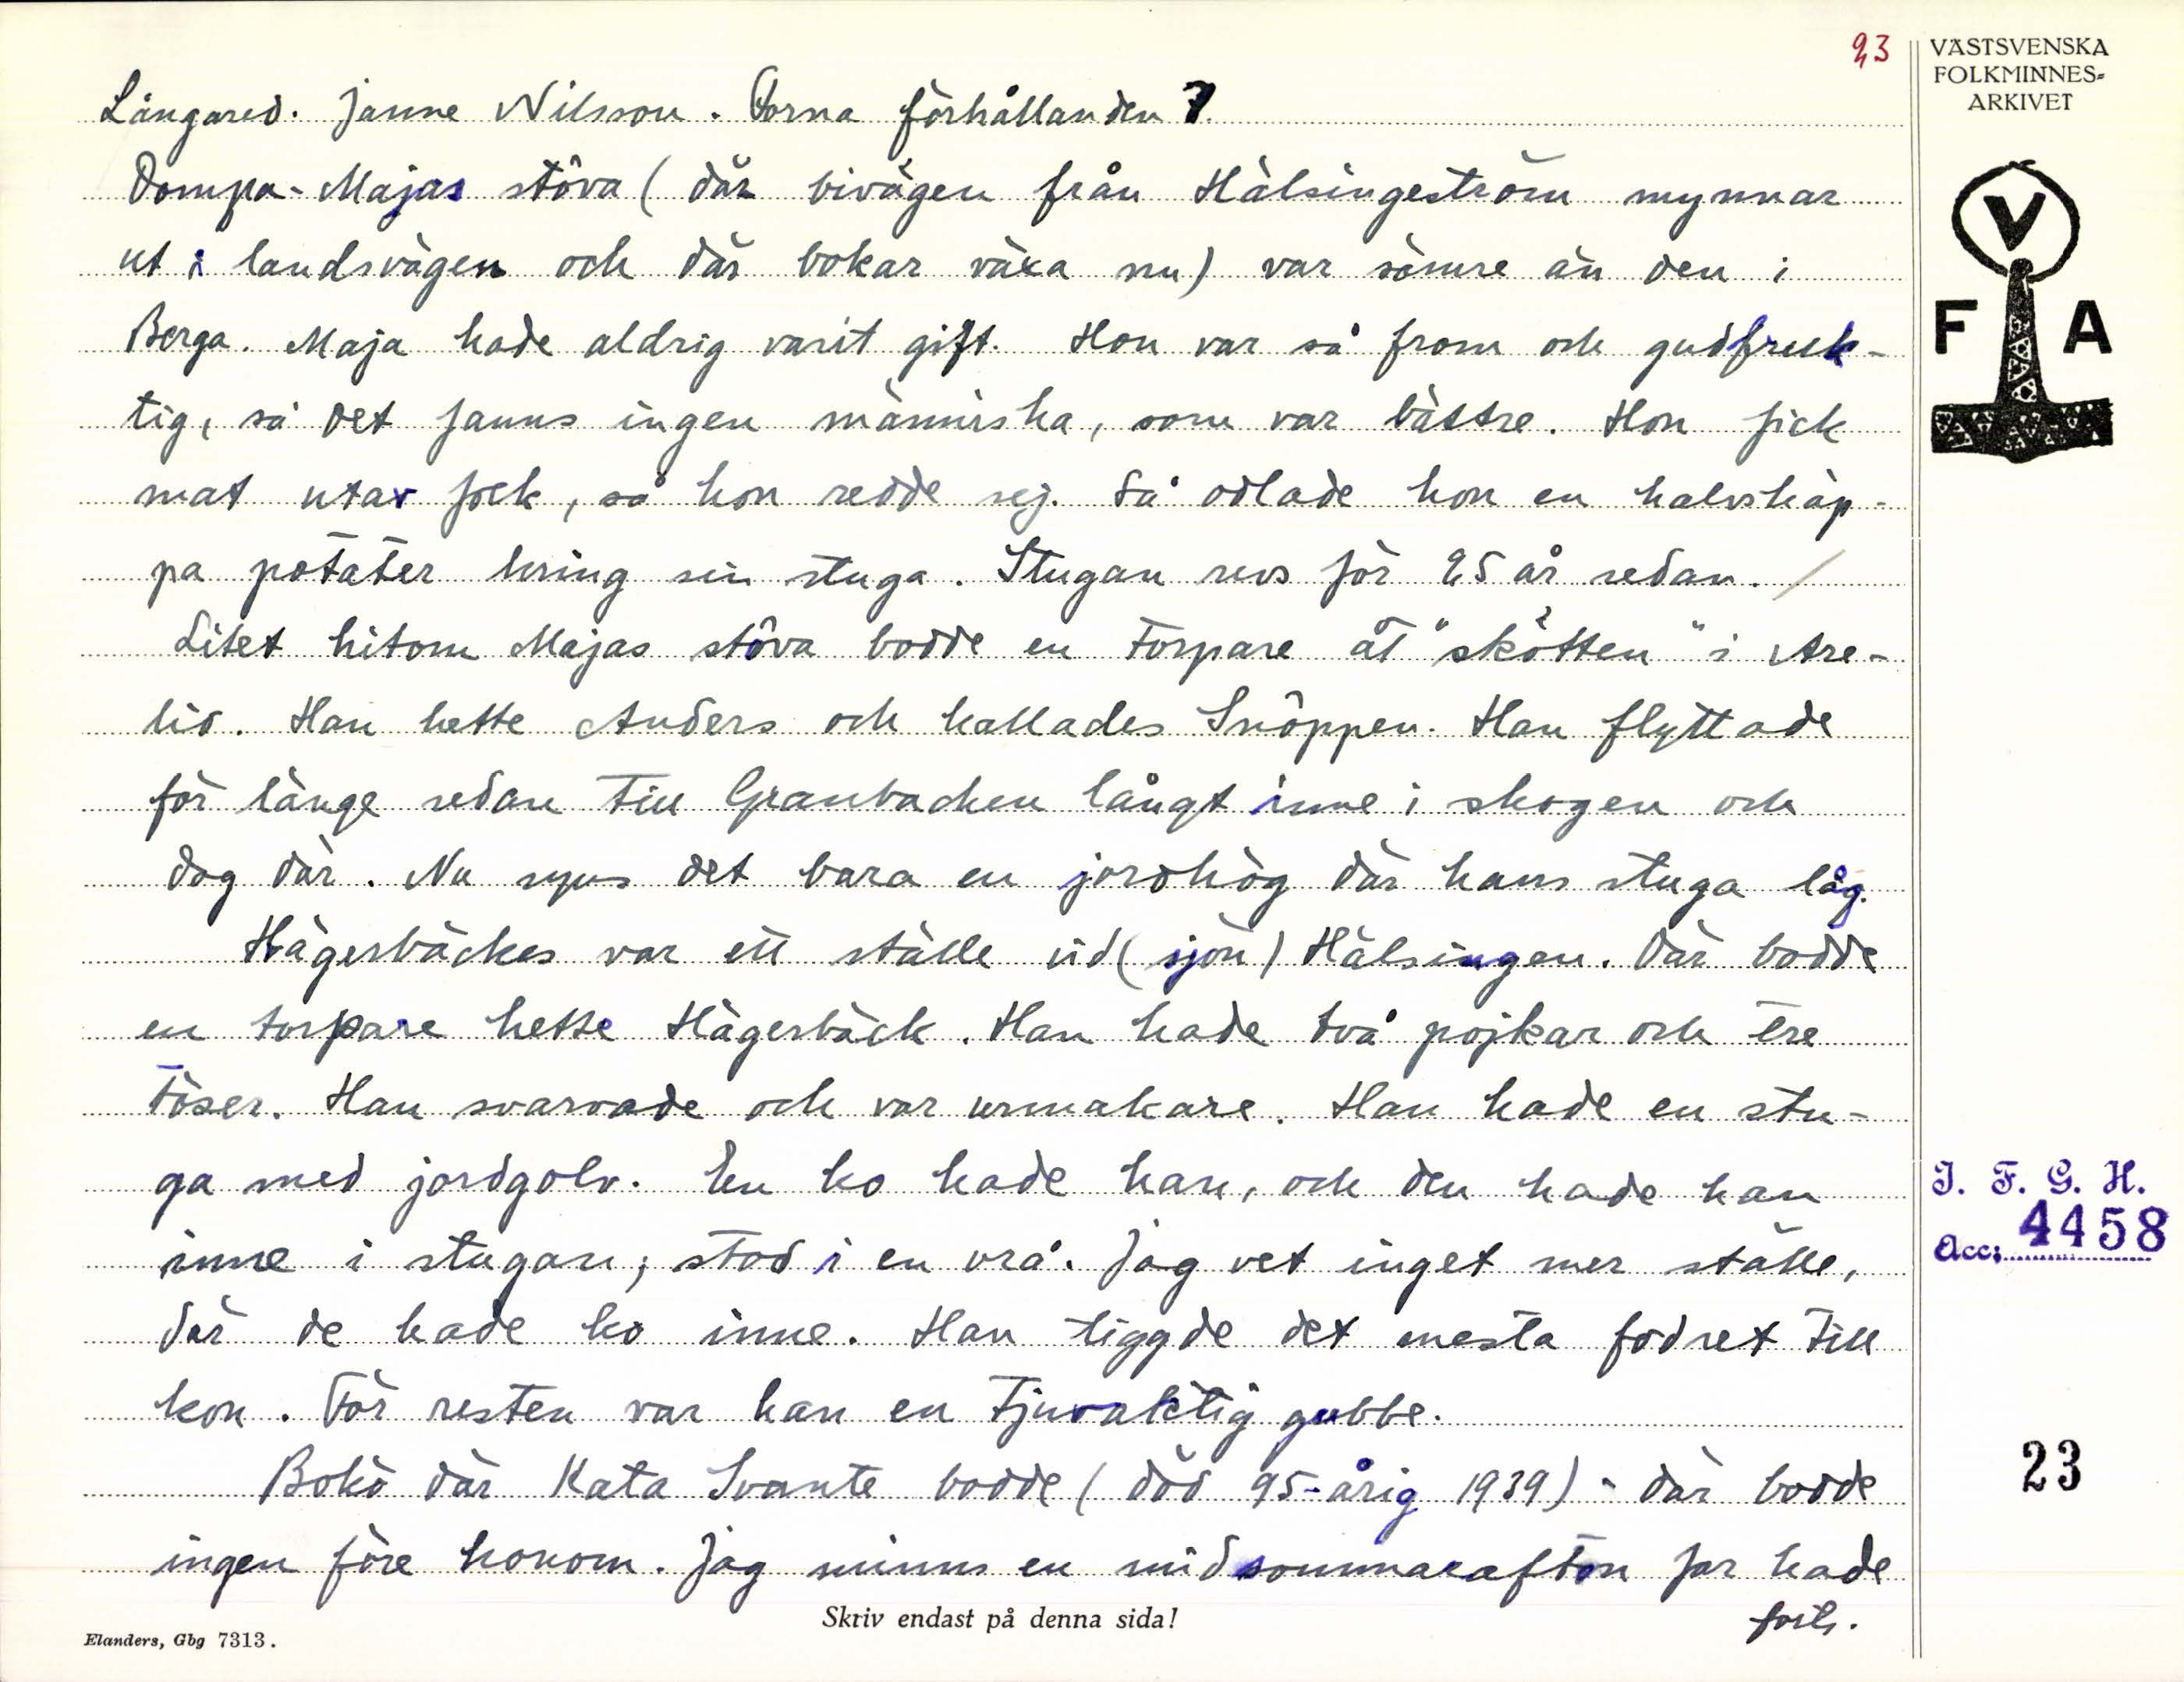 23
VÄSTSVENSKA
FOLKMINNES-
ARKIVET
Långared. Janne Nilsson. Forna förhållanden 7.
Dompa-Majas stôva (där bivägen från Hälsingeström mynnar
ut i landsvägen och där bokar växa nu) var sämre än den i
Berga. Maja hade aldrig varit gift. Hon var så from och gudfruk-
tig, så det fanns ingen människa, som var bättre. Hon fick
mat utav folk, så hon redde sej. Så odlade hon en halvskäp-
pa potäter kring sin stuga. Stugan revs för 25 år sedan. /
Litet hitom Majas stôva bodde en torpare åt "skötten" i Are-
lid. Han hette Anders och kallades Snôppen. Han flyttade
för länge sedan till Granbacken långt inne i skogen och
dog där. Nu syns det bara en jordhög där hans stuga låg.
Hägerbäckes var ett ställe vid (sjön) Hälsingen. Där bodde
en torpare hette Hägerbäck. Han hade två pojkar och tre
töser. Han svarvade och var urmakare. Han hade en stu-
ga med jordgolv. En ko hade han, och den hade han
inne i stugan; stod i en vrå. Jag vet inget mer ställe,
där de hade ko inne. Han tiggde det mesta fodret till
kon. För resten var han en tjuvaktig gubbe.
Bokö där Kata Svante bodde (död 95-årig 1939) - där bodde
ingen före honom. Jag minns en midsommarafton far hade
forts.
Skriv endast på denna sida!
Elanders, Gbg 7313.
V
F A
I. F. G. H.
Acc: 4458
23